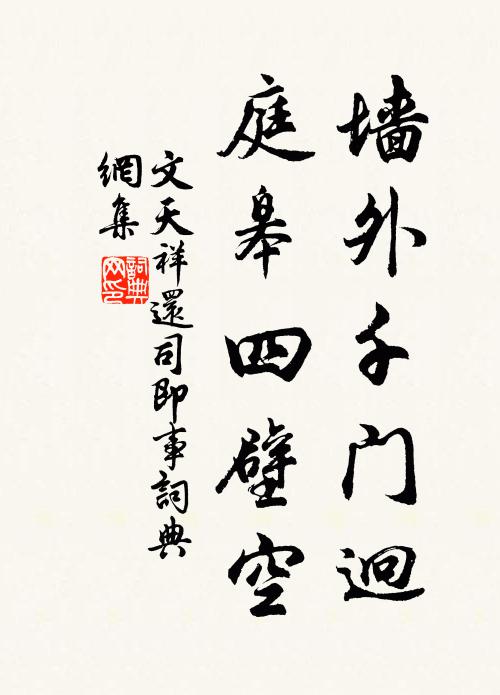 墙外千门迥
庭皋四壁空
文天祥還司即事詞典
網集
詞典
网印